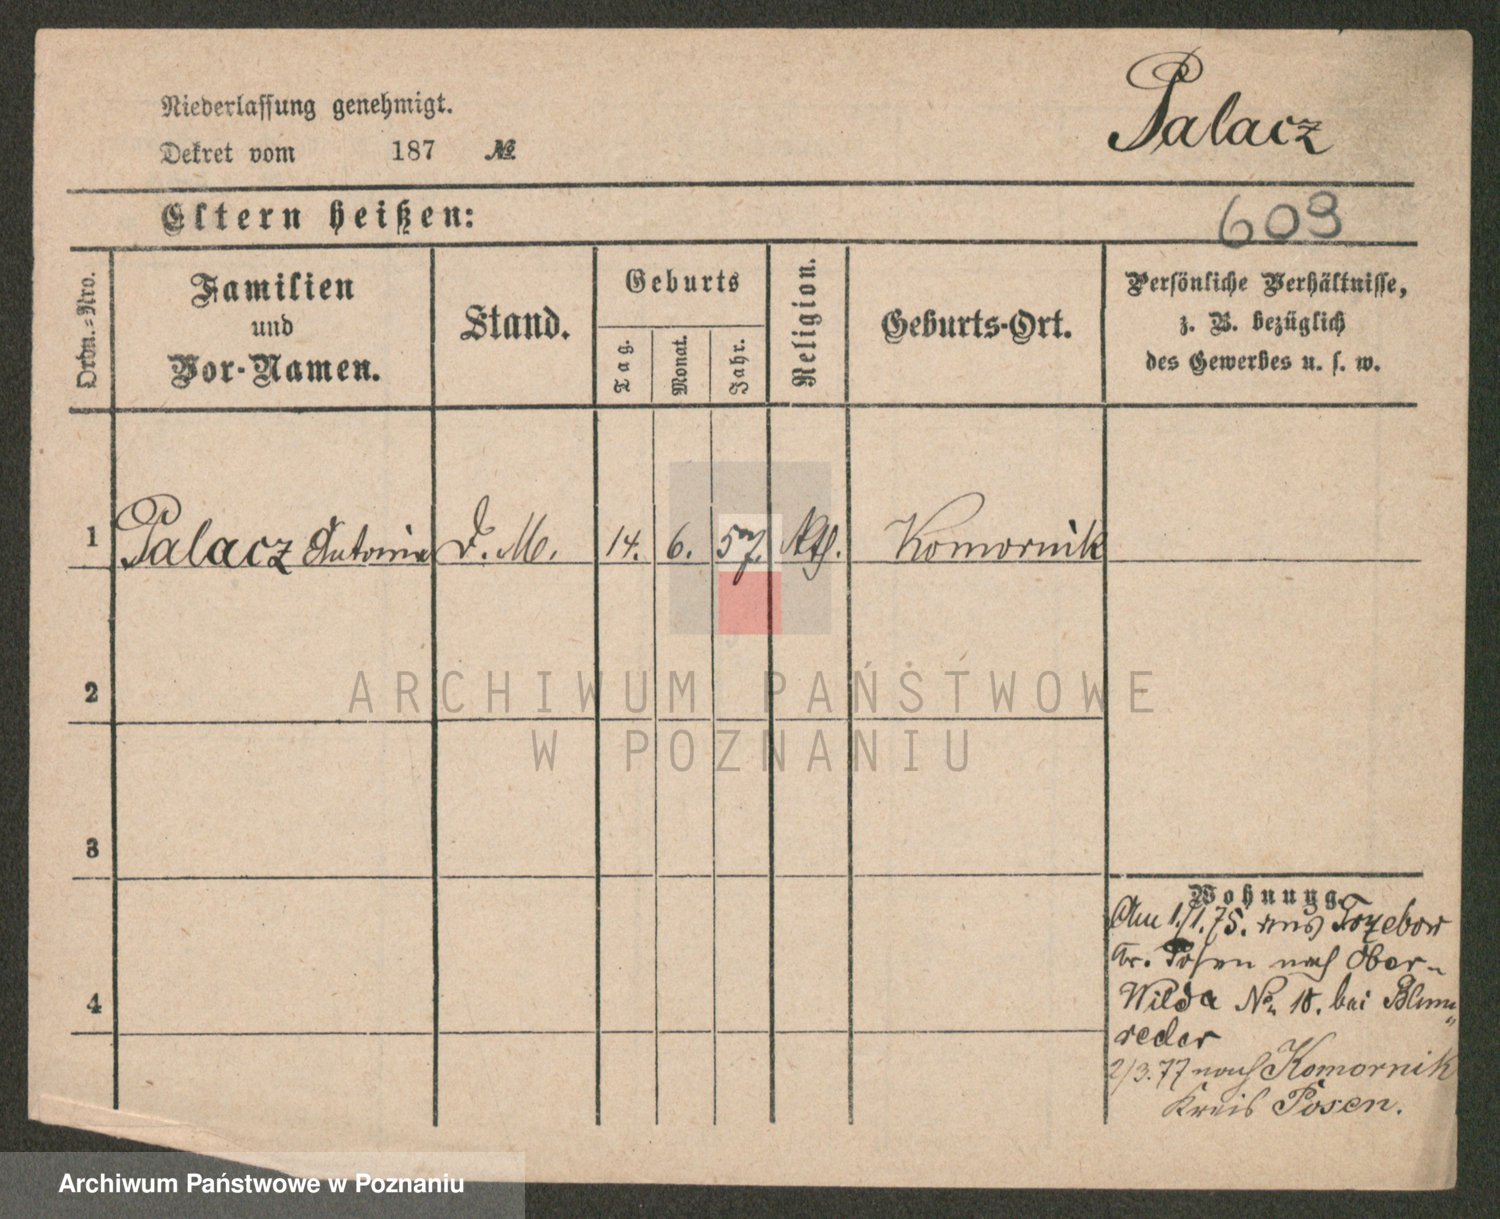 Palacz
Niederlassung genehmigt.
Dekret vom 187 №
Eltern heißen:
609
Ordn.=Nro.
Familien
und
Vor-Namen.
Stand.
Geburts
Tag.
Monat.
Jahr.
Religion.
Geburts-Ort.
Persönliche Verhältnisse,
z. B. bezüglich
des Gewerbes u. s. w.
1 Palacz Antonie D. M. 14. 6. 57. Kth. Komornik
2
ARCHIWUM PAŃSTWOWE
W POZNANIU
3
Wohnung.
Am 1./1.75. aus Trzebow
Kr. Posen nach Ober-
Wilda No 18. bei Blum„
reder
4
2/3.77 nach Komornik
Kreis Posen.
Archiwum Państwowe w Poznaniu